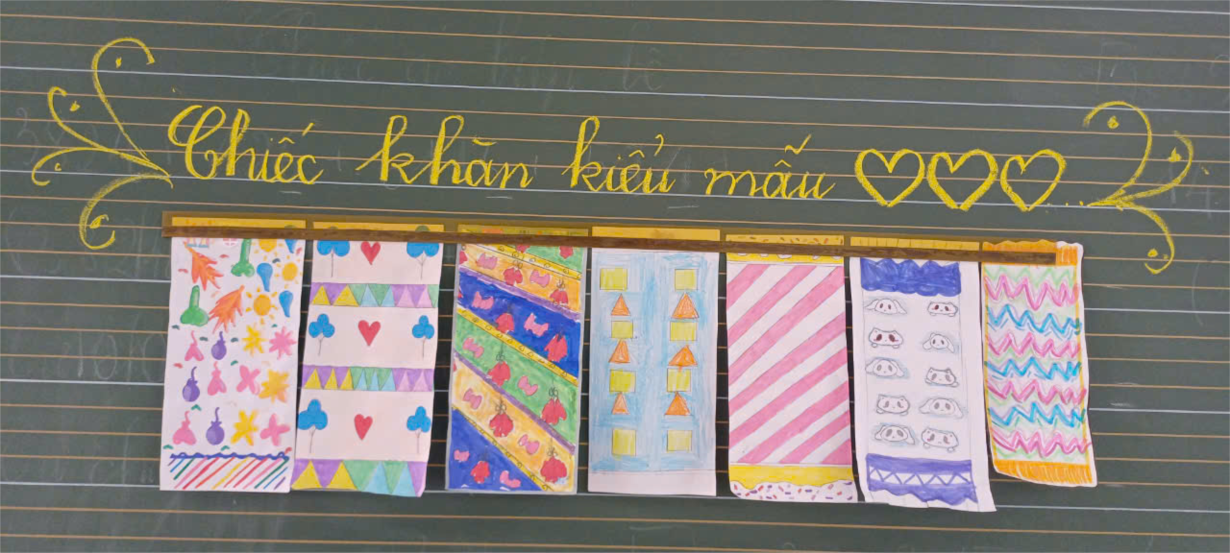 Chiếc khăn kiểu mẫu